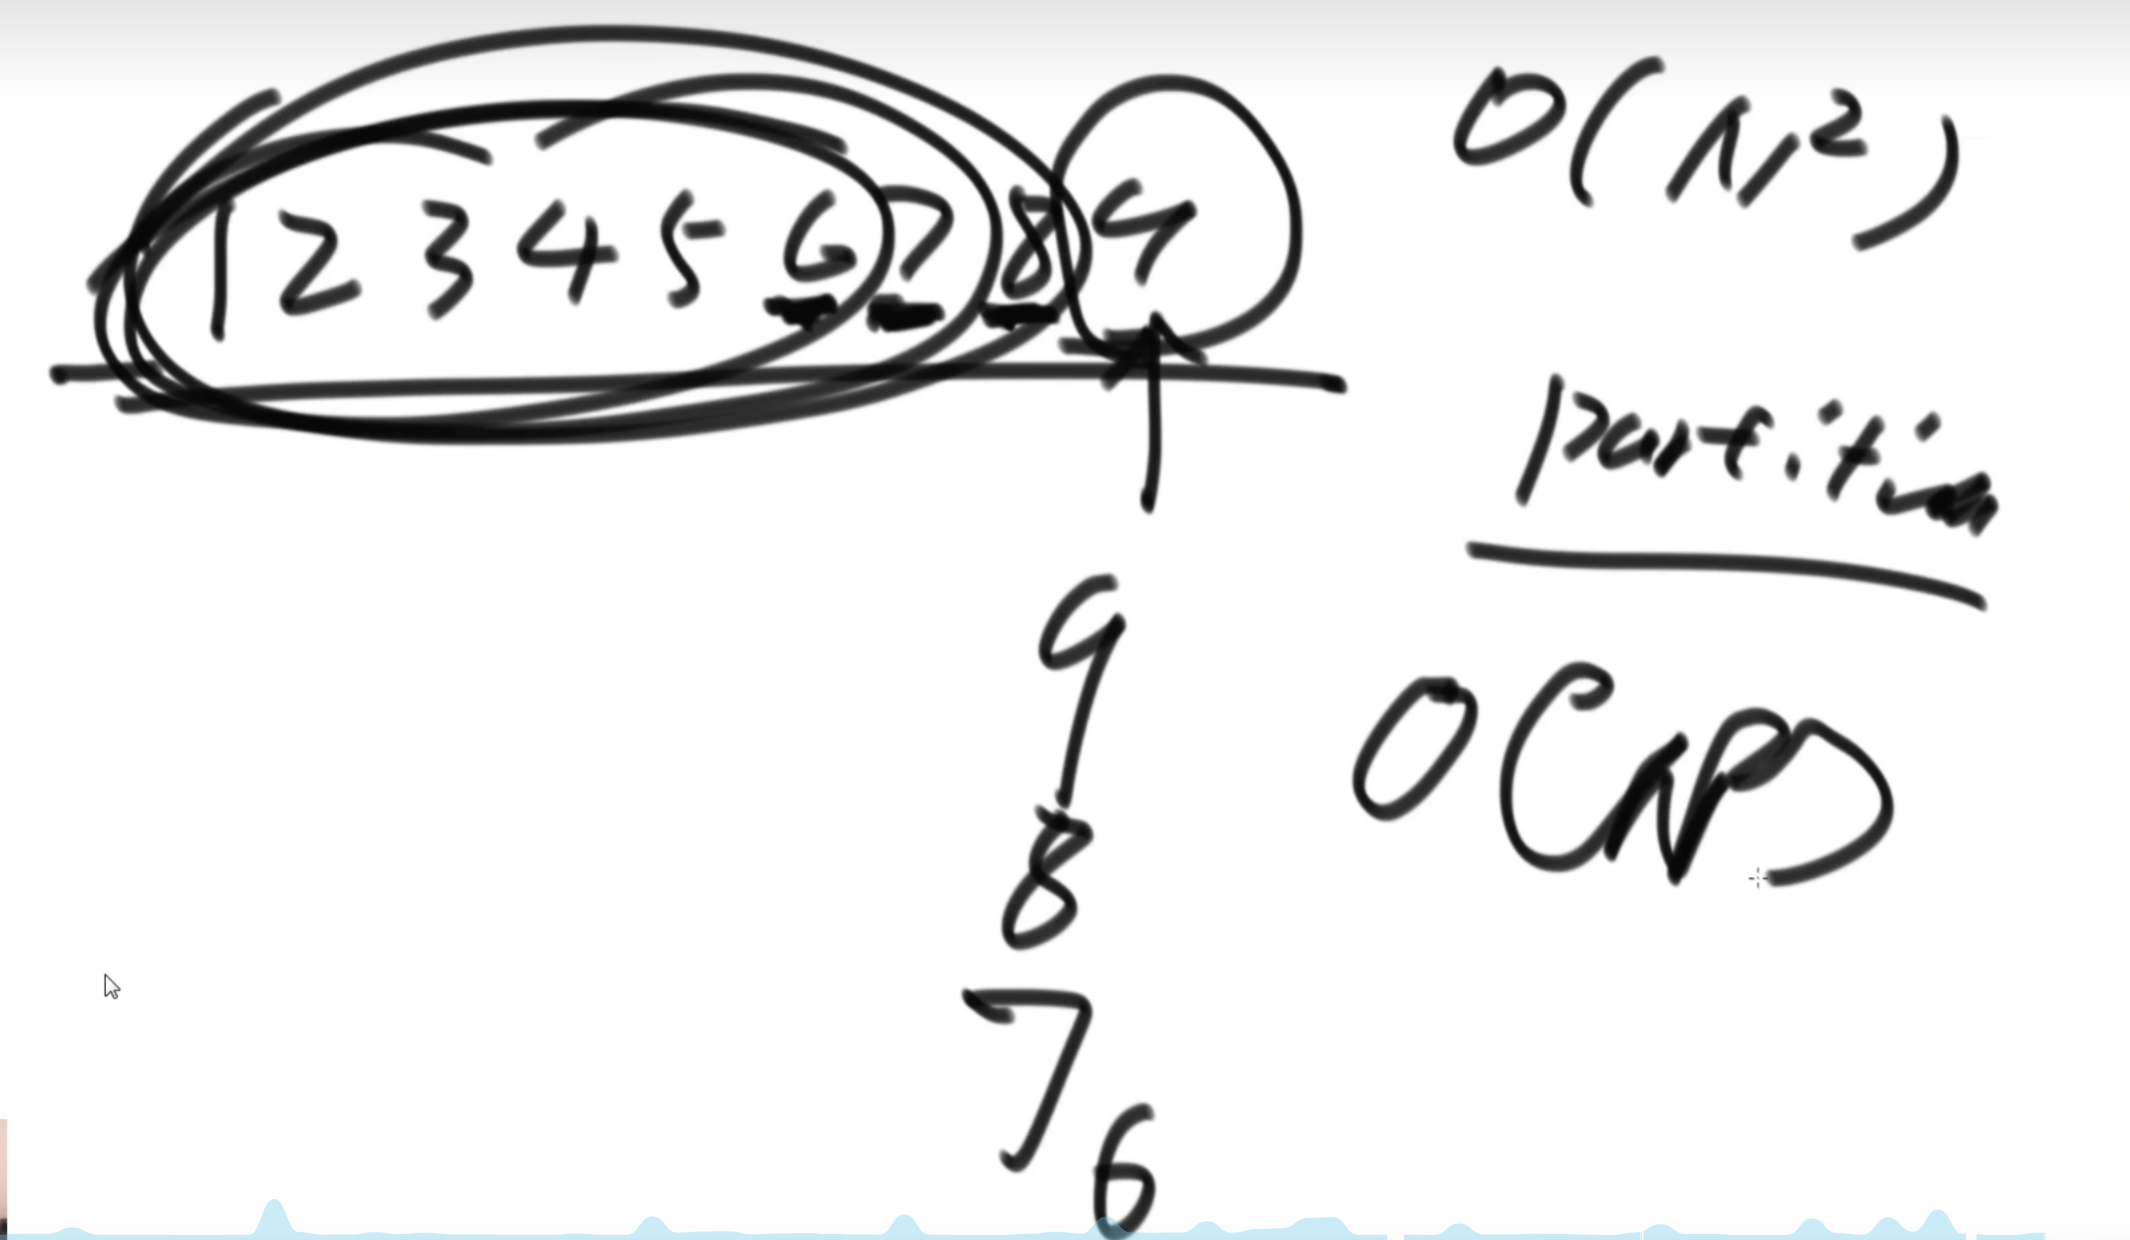 1 2 3 4 5 6 7 8 9
O(N²)
partition
9
O(N)
8
7
6